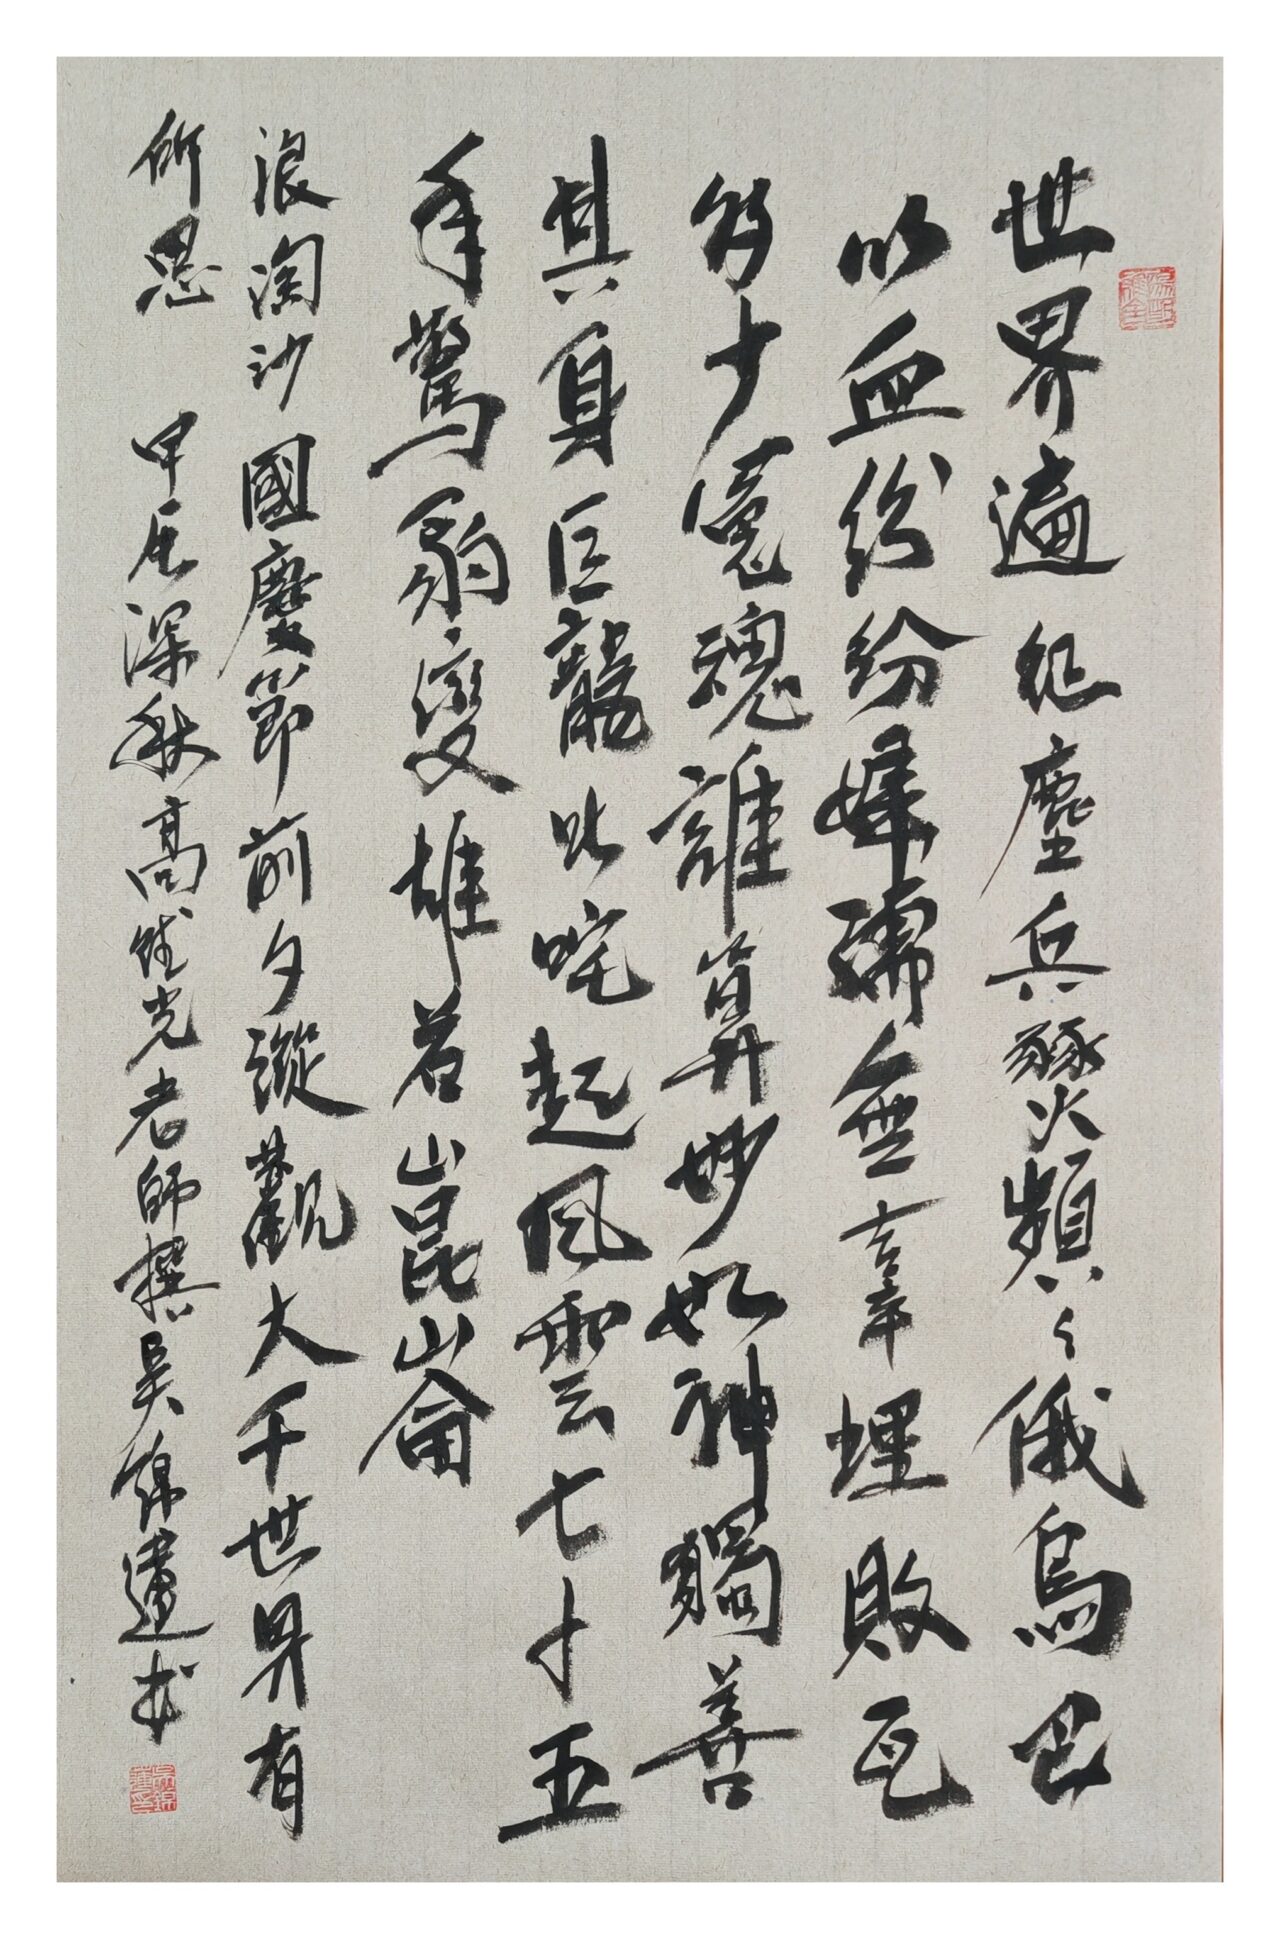 世界遍征塵兵燹頻々俄烏巴
以血紛紛婦孺無辜埋敗瓦
多少冤魂誰算妙如神獨善
其身巨龍叱咤起風雲七十五
年驚豹變雄若崑崙
浪淘沙國慶節前夕縱觀大千世界有
所思 甲辰深秋高继光老師撰吴錦蓮书